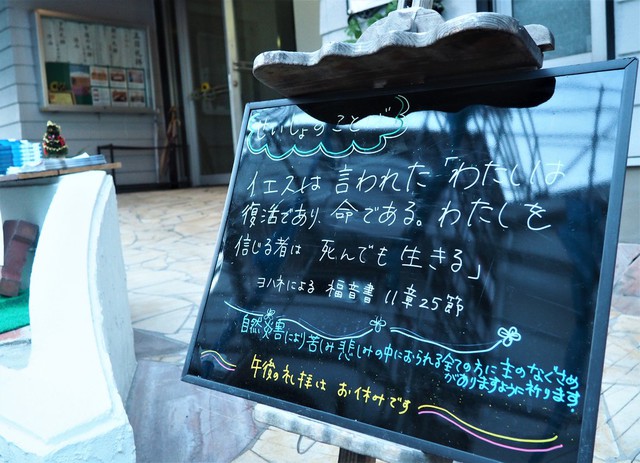 せいしょのことば
イエスは言われた「わたしは
復活であり、命である。わたしを
信じる者は 死んでも生きる」
ヨハネによる 福音書 11章25節
自然災害により苦しみ悲しみの中におられる全ての方に主のなぐさめ
がありますように祈ります。
午後の礼拝は お休みです